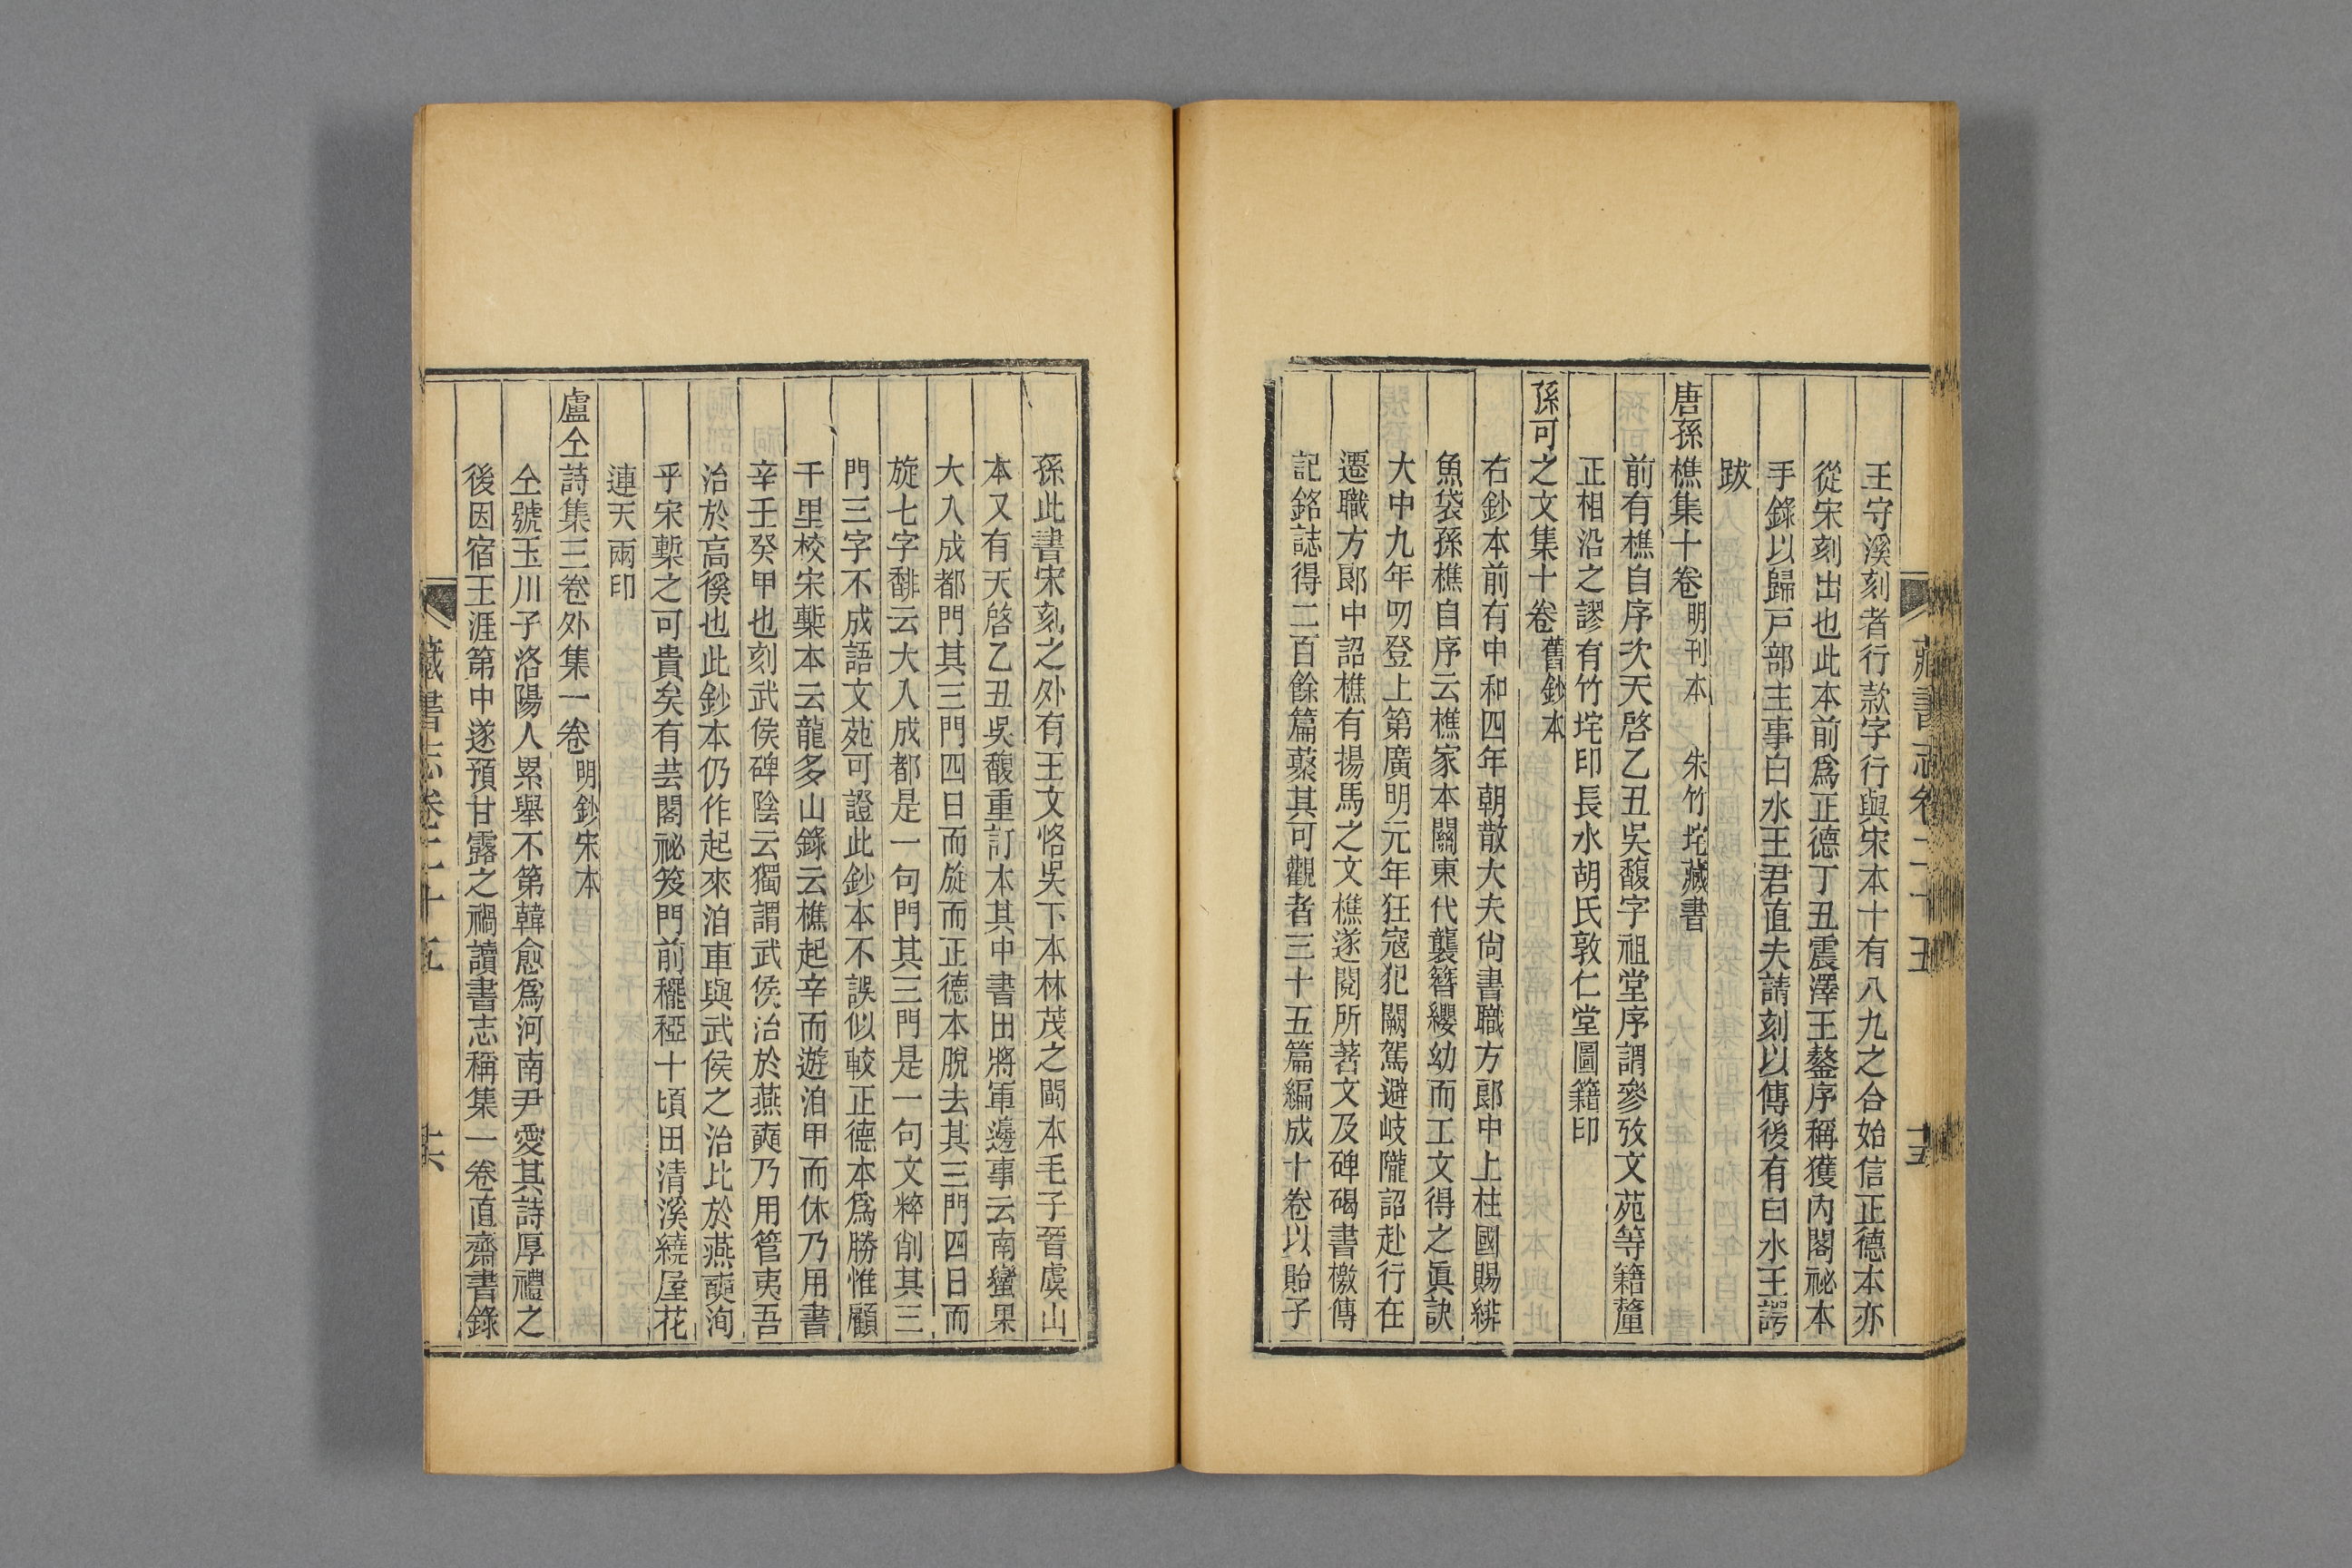 王守溪刻者行款字行與宋本十有八九之合始信正德本亦
從宋刻出也此本前爲正德丁丑震澤王鏊序稱獲內閣祕本
手錄以歸戸部主事白水王君直夫請刻以傳後有白水王諤
跋
唐孫樵集十卷 明刊本 朱竹垞藏書
前有樵自序次天啓乙丑吳馥字祖堂序謂參攷文苑等籍釐
正相沿之謬有竹垞印長水胡氏敦仁堂圖籍印
孫可之文集十卷 舊鈔本
右鈔本前有中和四年朝散大夫尙書職方郞中上柱國賜緋
魚袋孫樵自序云樵家本關東代襲簪纓幼而工文得之眞訣
大中九年叨登上第廣明元年狂寇犯闕駕避岐隴詔赴行在
遷職方郞中詔樵有揚馬之文樵遂閱所著文及碑碣書檄傳
記銘誌得二百餘篇蕞其可觀者三十五篇編成十卷以貽子
孫此書宋刻之外有王文恪吳下本林茂之閩本毛子晉虞山
本又有天啓乙丑吳馥重訂本其中書田將軍邊事云南蠻果
大入成都門其三門四日而旋而正德本脫去其三門四日而
旋七字馡云大入成都是一句門其三門是一句文粹削其三
門三字不成語文苑可證此鈔本不誤似較正德本爲勝惟顧
千里校宋槧本云龍多山錄云樵起辛而遊洎甲而休乃用書
辛壬癸甲也刻武侯碑陰云獨謂武侯治於燕奭乃用管夷吾
治於高徯也此鈔本仍作起來洎車與武侯之治比於燕奭洵
乎宋槧之可貴矣有芸閣祕笈門前䆉稏十頃田清溪繞屋花
連天兩印
盧仝詩集三卷外集一卷 明鈔宋本
仝號玉川子洛陽人累舉不第韓愈爲河南尹愛其詩厚禮之
後因宿王涯第中遂預甘露之禍讀書志稱集一卷直齋書錄
藏書志卷二十五